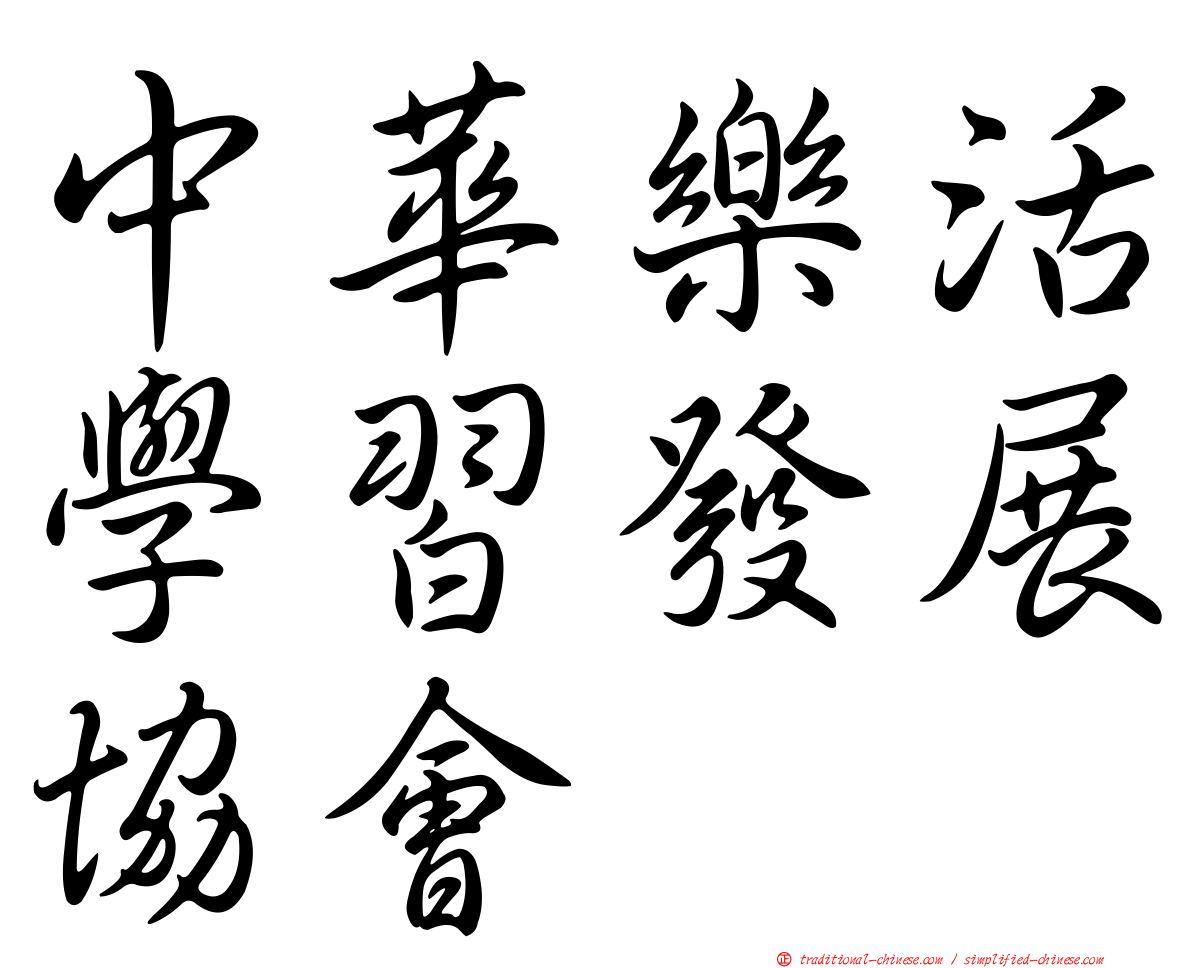 中華樂活
學習發展
協會
㊣ traditional-chinese.com / simplified-chinese.com